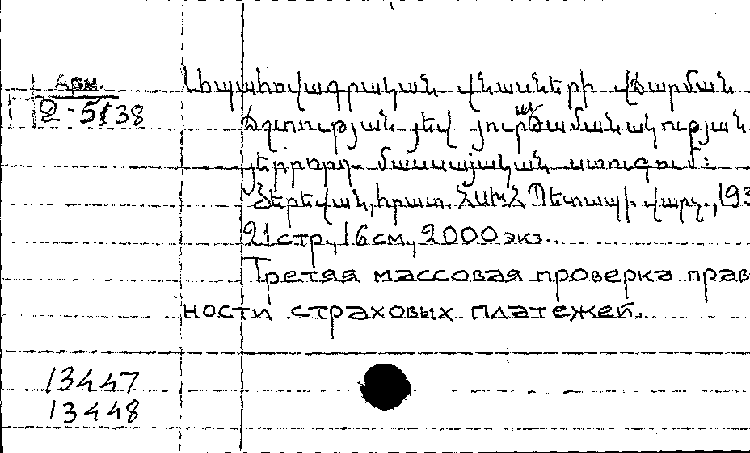 Арм.
2-5138
Ապահովագրական վնասների վճարման
ճշտության յեվ յուրաժամանակության
յերրորդ մասսայական ստուգում:
Յերևան, հրատ. ՀՍԽՀ Պետապի վարչ., 193
21 стр., 16 см., 2000 экз.
Третяя массовая проверка прав
ности страховых платежей.
13447
13448